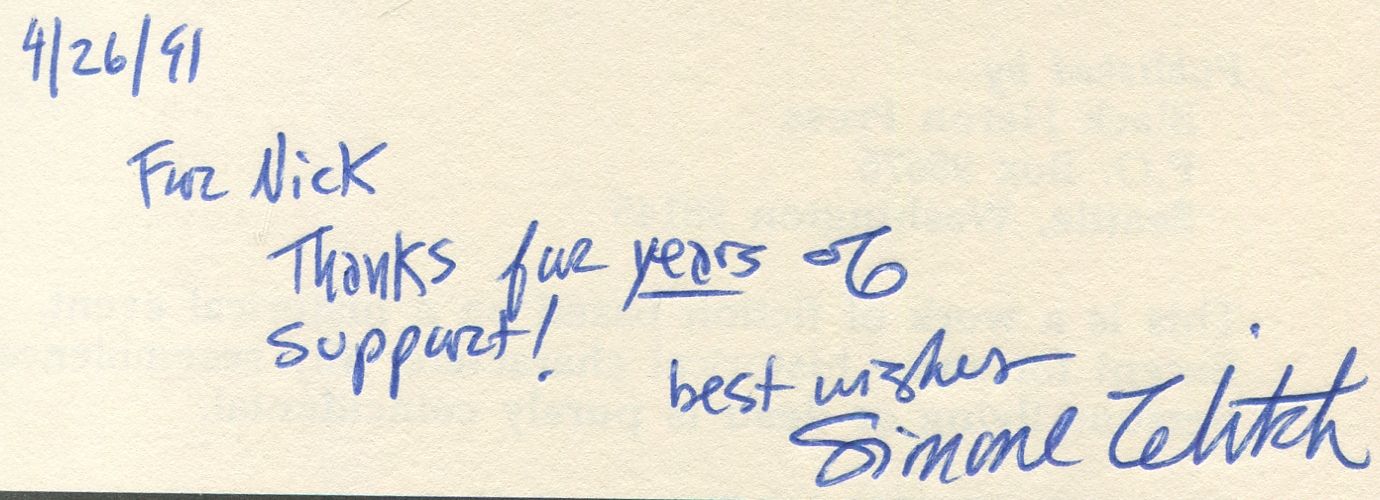 4/26/91
For Nick
Thanks for years of
support!
best wishes
Simone Zelitch